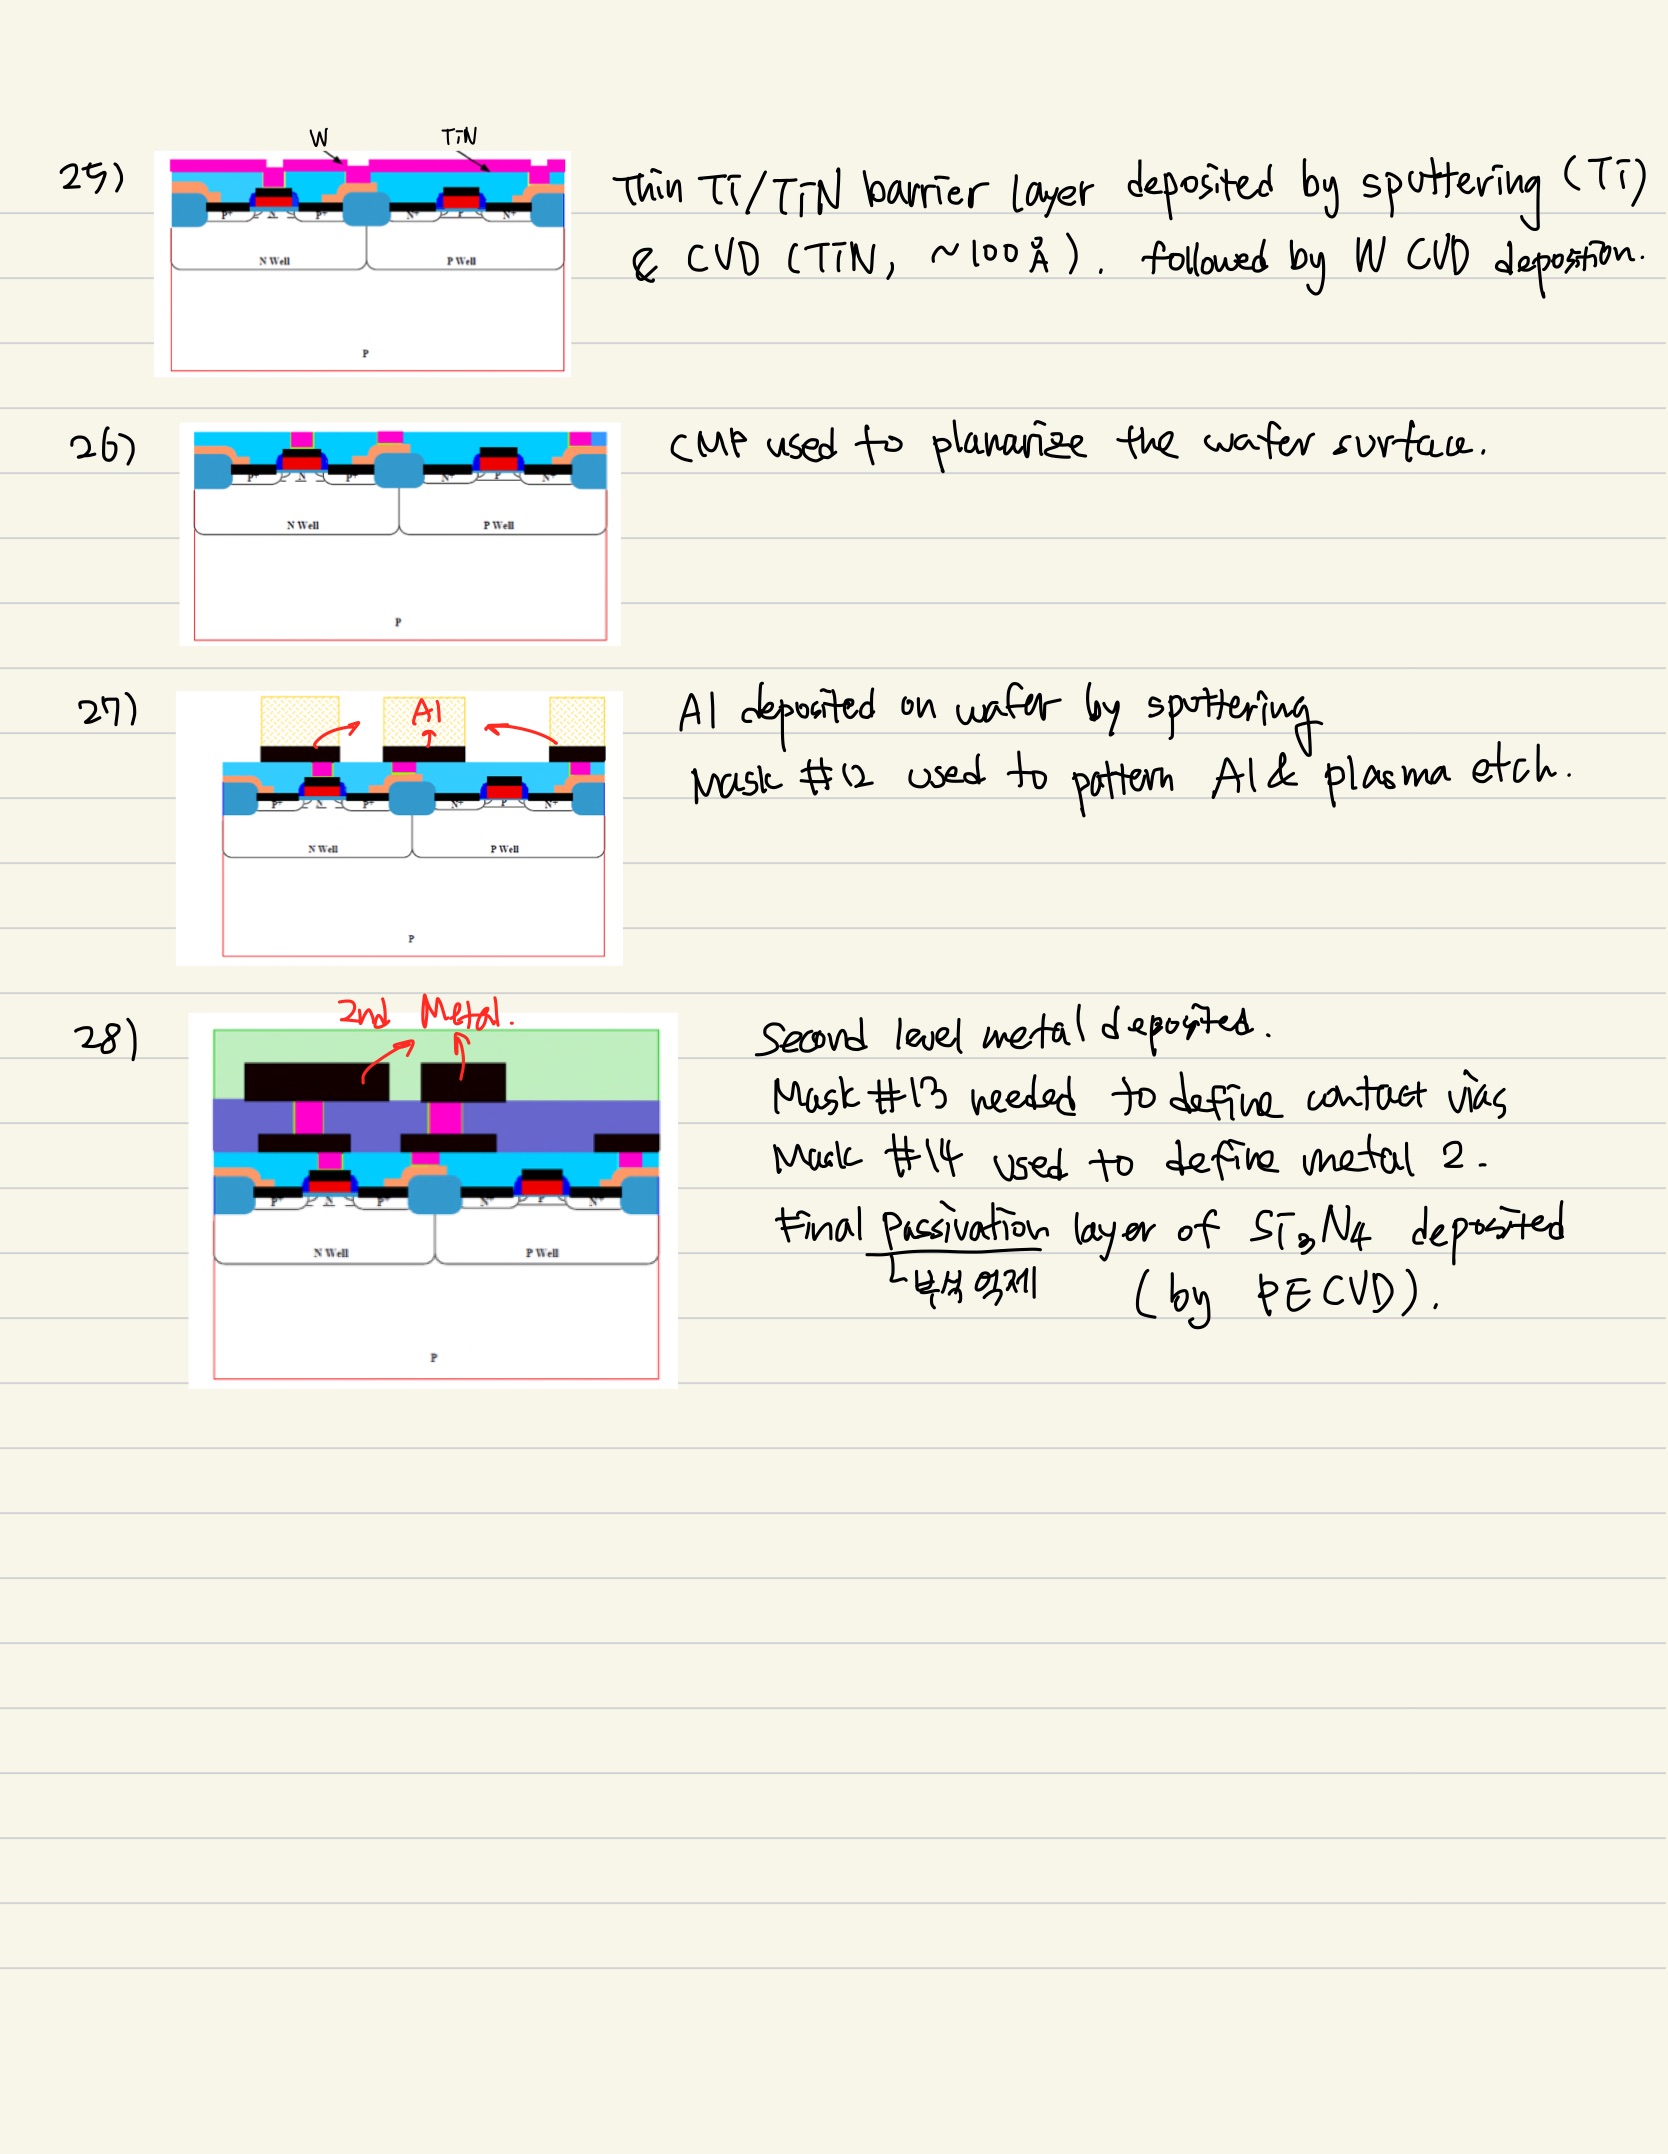 25)
W
TiN
P+ N P+ N+ P N+
N Well
P Well
P
Thin Ti/TiN barrier layer deposited by sputtering (Ti)
& CVD (TiN, ~100Å). followed by W CVD deposition.
26)
P+ N P+ N+ P N+
N Well
P Well
P
CMP used to planarize the wafer surface.
27)
Al
P+ N P+ N+ P N+
N Well
P Well
P
Al deposited on wafer by sputtering
Mask #12 used to pattern Al & plasma etch.
28)
2nd Metal.
P+ N P+ N+ P N+
N Well
P Well
P
Second level metal deposited.
Mask #13 needed to define contact vias
Mask #14 used to define metal 2.
Final Passivation layer of Si3N4 deposited
부식 억제
(by PECVD).